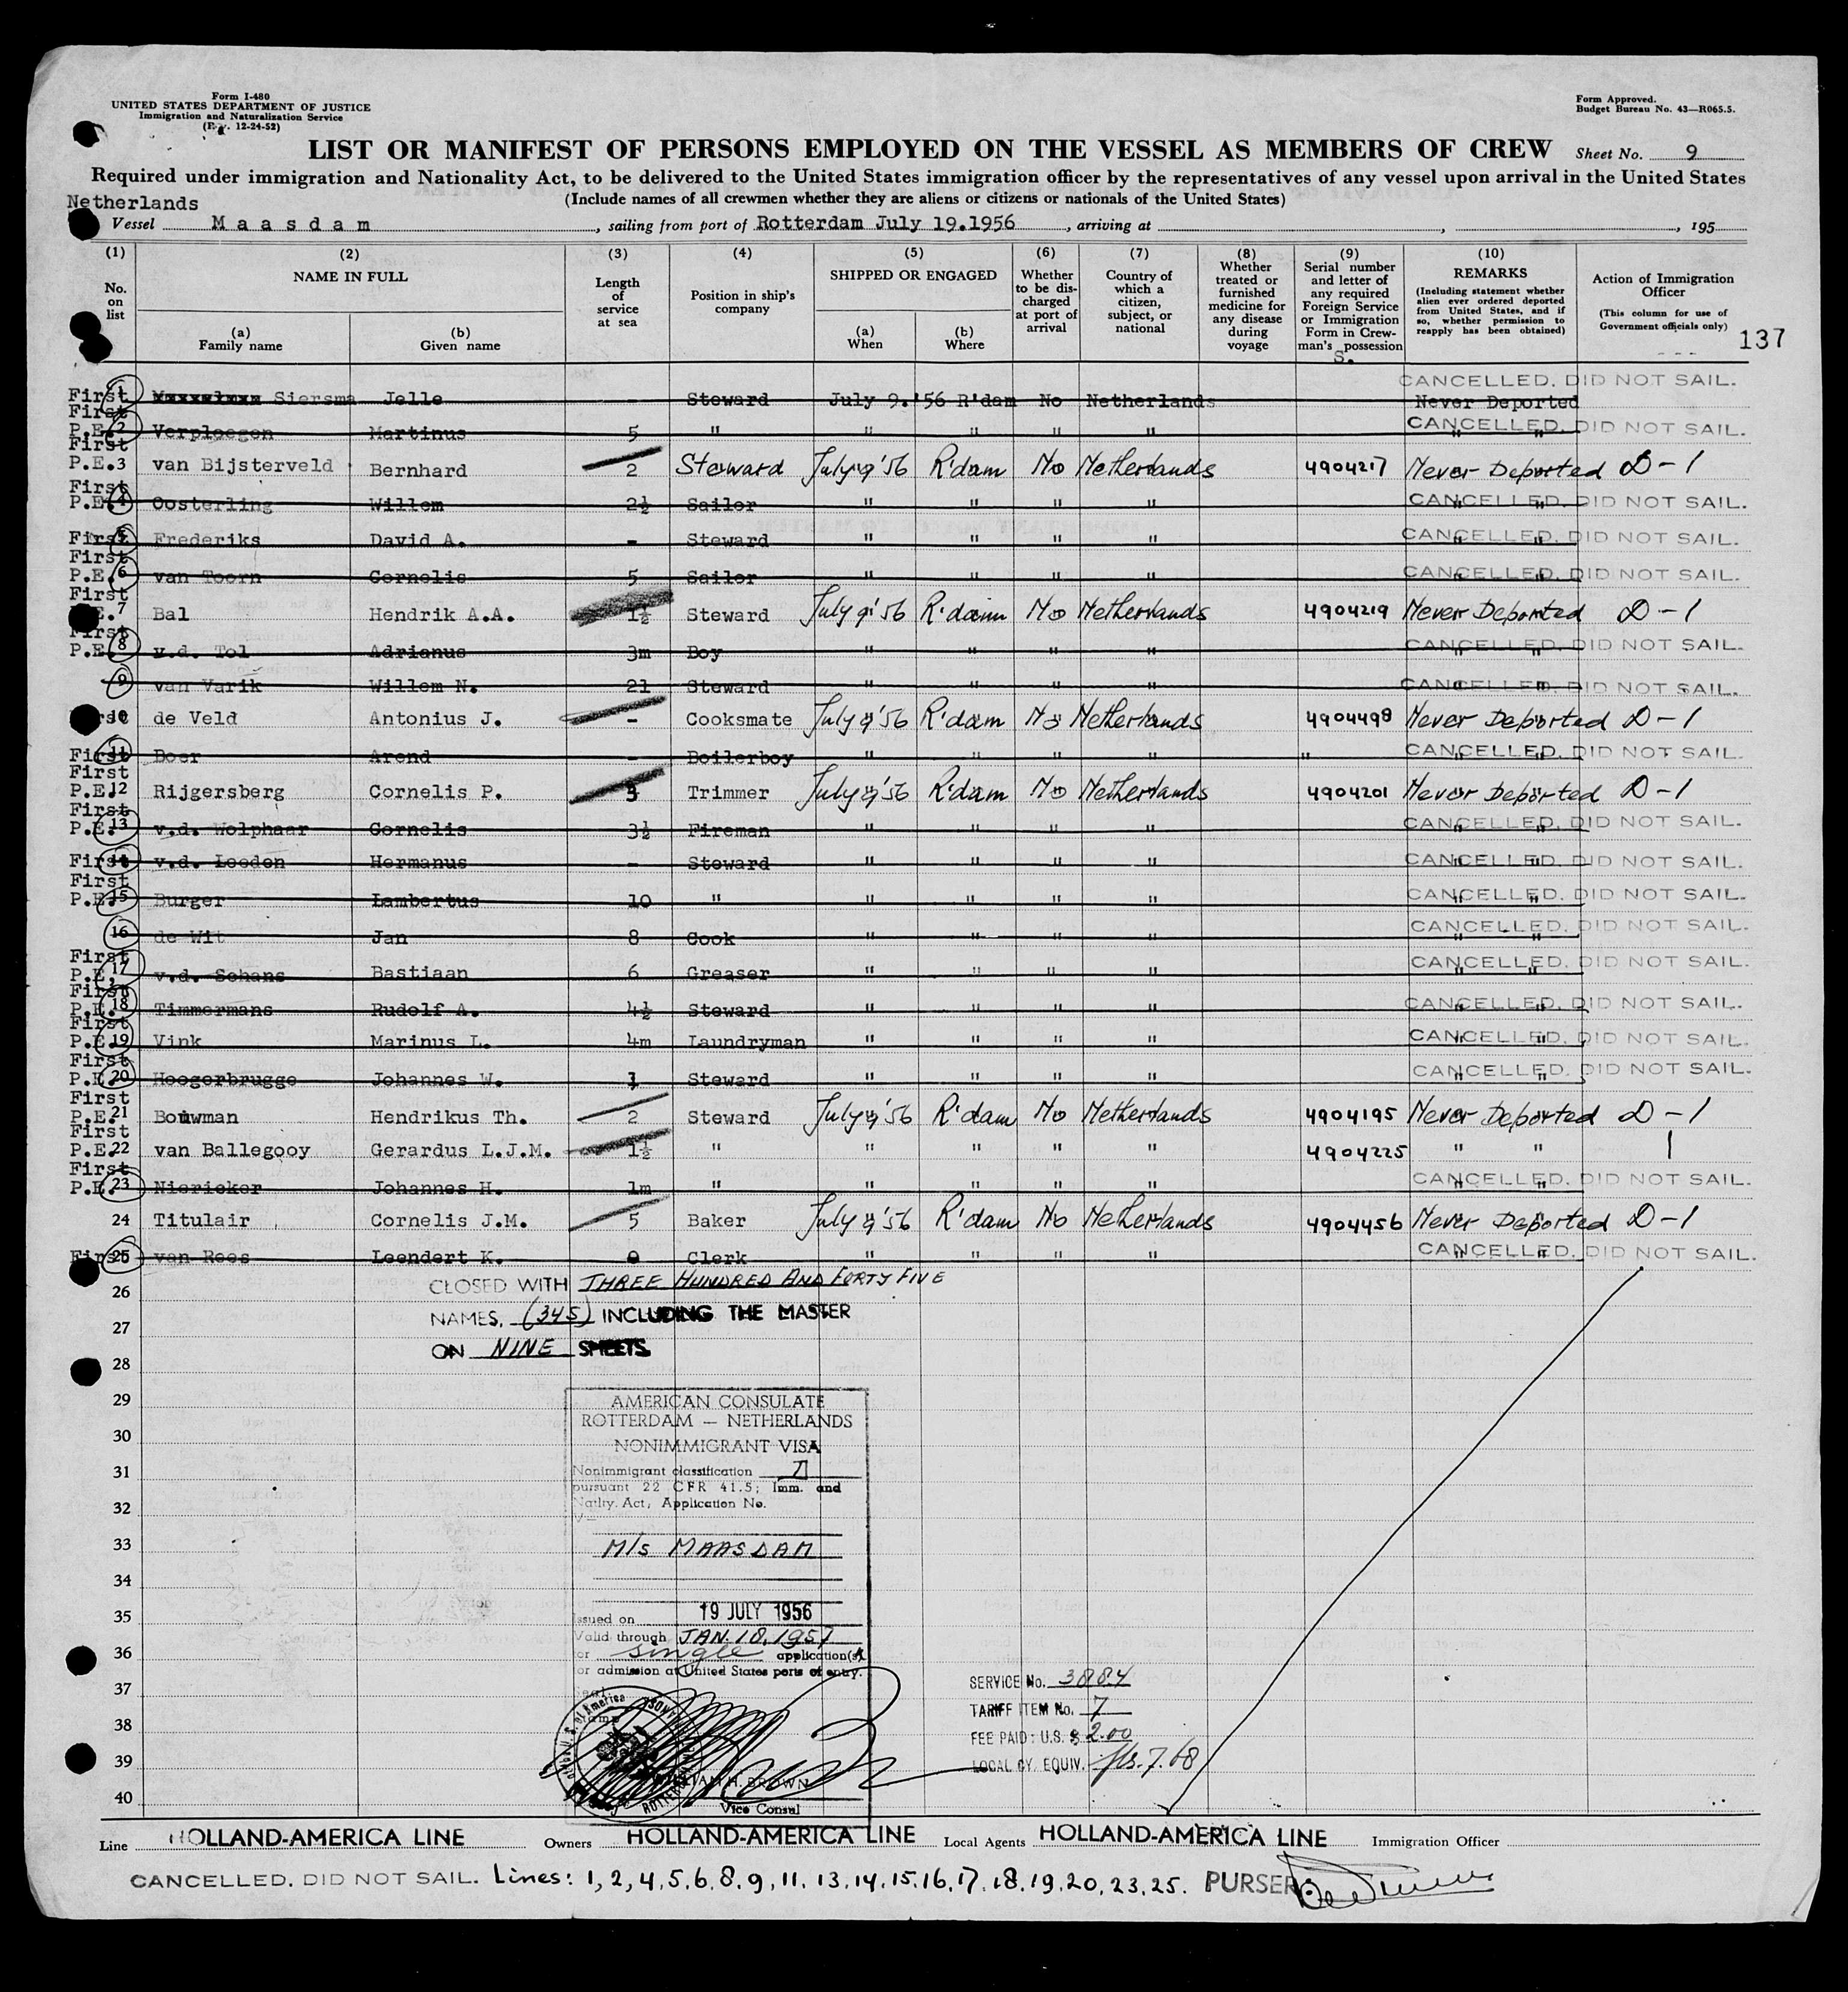 Form I-480
UNITED STATES DEPARTMENT OF JUSTICE
Immigration and Naturalization Service
12-24-52)
Form Approved.
Budget Bureau No. 43—R065.5.
LIST OR MANIFEST OF PERSONS EMPLOYED ON THE VESSEL AS MEMBERS OF CREW Sheet No. 9
Required under immigration and Nationality Act, to be delivered to the United States immigration officer by the representatives of any vessel upon arrival in the United States
(Include names of all crewmen whether they are aliens or citizens or nationals of the United States)
Netherlands
Vessel Maasdam, sailing from port of Rotterdam July 19.1956, arriving at , , 195
(1) No. on list
(2) NAME IN FULL
(a) Family name
(b) Given name
(3) Length of service at sea
(4) Position in ship's company
(5) SHIPPED OR ENGAGED
(a) When
(b) Where
(6) Whether to be discharged at port of arrival
(7) Country of which a citizen, subject, or national
(8) Whether treated or furnished medicine for any disease during voyage
(9) Serial number and letter of any required Foreign Service or Immigration Form in Crewman's possession
S.
(10) REMARKS
(Including statement whether alien ever ordered deported from United States, and if so, whether permission to reapply has been obtained)
Action of Immigration Officer
(This column for use of Government officials only)
137
First 1 Siersma Jelle - Steward July 9.'56 R'dam No Netherlands Never Deported CANCELLED. DID NOT SAIL.
First P.E. 2 Verploegen Martinus 5 " " " " " " " CANCELLED. DID NOT SAIL.
First P.E. 3 van Bijsterveld Bernhard 2 Steward July 9 '56 R'dam No Netherlands 4904217 Never Deported D-1
First P.E. 4 Oosterling Willem 2½ Sailor " " " " " " CANCELLED. DID NOT SAIL.
First 5 Frederiks David A. - Steward " " " " " " CANCELLED. DID NOT SAIL.
First P.E. 6 van Toorn Cornelis 5 Sailor " " " " " " CANCELLED. DID NOT SAIL.
First P.E. 7 Bal Hendrik A.A. 1½ Steward July 9 '56 R'dam No Netherlands 4904219 Never Deported D-1
First P.E. 8 v.d. Tol Adrianus 3m Boy " " " " " " CANCELLED. DID NOT SAIL.
9 van Varik Willem N. 21 Steward " " " " " " CANCELLED. DID NOT SAIL.
First 10 de Veld Antonius J. - Cooksmate July 9 '56 R'dam No Netherlands 4904498 Never Deported D-1
First 11 Boer Arend - Boilerboy " " " " " " " CANCELLED. DID NOT SAIL.
First P.E. 12 Rijgersberg Cornelis P. 3 Trimmer July 9 '56 R'dam No Netherlands 4904201 Never Deported D-1
First P.E. 13 v.d. Wolphaar Cornelis 3½ Fireman " " " " " " CANCELLED. DID NOT SAIL.
First 14 v.d. Leeden Hermanus - Steward " " " " " " CANCELLED. DID NOT SAIL.
First P.E. 15 Burger Lambertus 10 " " " " " " " CANCELLED. DID NOT SAIL.
16 de Wit Jan 8 Cook " " " " " " CANCELLED. DID NOT SAIL.
First P.E. 17 v.d. Schans Bastiaan 6 Greaser " " " " " " CANCELLED. DID NOT SAIL.
First P.E. 18 Timmermans Rudolf A. 4½ Steward " " " " " " CANCELLED. DID NOT SAIL.
First P.E. 19 Vink Marinus L. 4m Laundryman " " " " " " CANCELLED. DID NOT SAIL.
First P.E. 20 Hoogerbrugge Johannes W. 1 Steward " " " " " " CANCELLED. DID NOT SAIL.
First P.E. 21 Bouwman Hendrikus Th. 2 Steward July 9 '56 R'dam No Netherlands 4904195 Never Deported D-1
First P.E. 22 van Ballegooy Gerardus L.J.M. 1½ " " " " " 4904225 " " 1
First P.E. 23 Niericker Johannes H. 1m " " " " " " " CANCELLED. DID NOT SAIL.
24 Titulair Cornelis J.M. 5 Baker July 9 '56 R'dam No Netherlands 4904456 Never Deported D-1
First 25 van Rees Leendert K. 0 Clerk " " " " " " CANCELLED. DID NOT SAIL.
26 CLOSED WITH THREE HUNDRED AND FORTY FIVE
27 NAMES, (345) INCLUDING THE MASTER
28 ON NINE SHEETS
29 AMERICAN CONSULATE
30 ROTTERDAM — NETHERLANDS
NONIMMIGRANT VISA
31 Nonimmigrant classification D
pursuant 22 CFR 41.5; Imm. and
32 Natlty. Act, Application No.
V—
33 M/s MAASDAM
34
35 Issued on 19 JULY 1956
Valid through JAN. 18, 1957
36 for single application(s)
for admission at United States ports of entry.
37 Seal
38 Stamp
39 WILLIAM H. BROWN
40 Vice Consul
SERVICE No. 3884
TARIFF ITEM No. 7
FEE PAID: U.S. $ 2.00
LOCAL CY. EQUIV. fls. 7.68
Line HOLLAND-AMERICA LINE Owners HOLLAND-AMERICA LINE Local Agents HOLLAND-AMERICA LINE Immigration Officer
CANCELLED. DID NOT SAIL. Lines: 1, 2, 4, 5, 6, 8, 9, 11, 13, 14, 15, 16, 17, 18, 19, 20, 23, 25. PURSER: